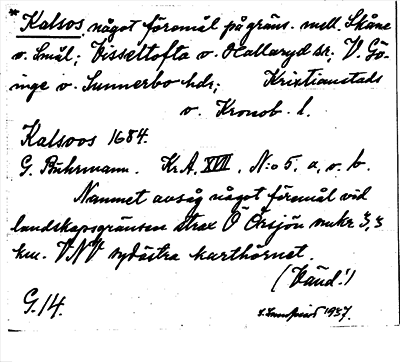 * Kalsos något föremål på gräns. mell. Skåne
o. Smål; Visseltofta o. Hallaryd sr; V. Gö-
inge o. Sunnerbo hdr; Kristianstads
o. Kronob. l.
Kalsoos 1684.
G. Buhrmann. Kr.A. XVII, N:o 5, a, o. b.
Namnet avsåg något föremål vid
landskapsgränsen strax Ö Örsjön unkr 3,3
km. VNV sydöstra karthörnet.
(Vänd!)
G. 14.
1937.